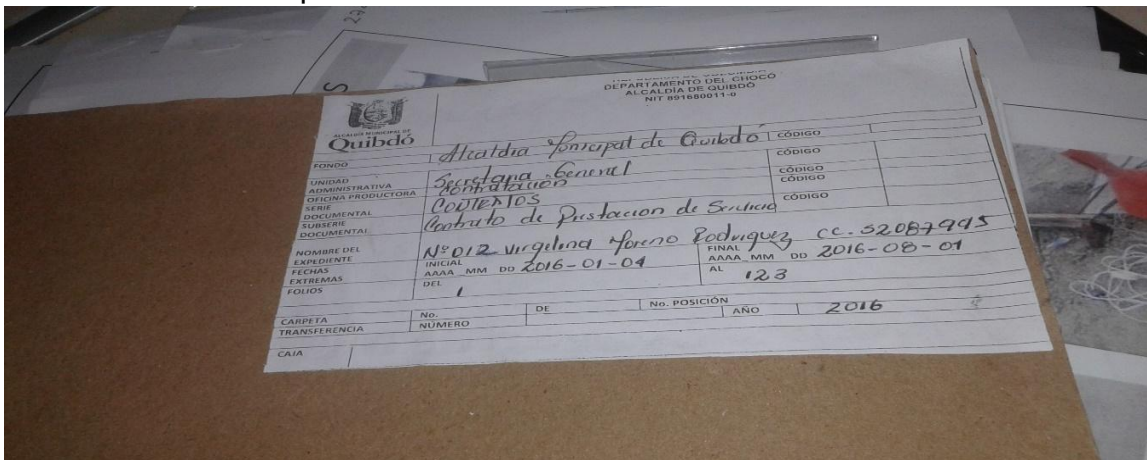 DEPARTAMENTO DEL CHOCÓ
ALCALDÍA DE QUIBDÓ
NIT 891680011-0
ALCALDÍA MUNICIPAL DE
Quibdó
FONDO Alcaldia Municipal de Quibdó CÓDIGO
UNIDAD ADMINISTRATIVA Secretaria General CÓDIGO
OFICINA PRODUCTORA Contratación CÓDIGO
SERIE DOCUMENTAL CONTRATOS CÓDIGO
SUBSERIE DOCUMENTAL Contrato de Prestacion de Servicio CÓDIGO
NOMBRE DEL EXPEDIENTE Nº 012 Virgelina Moreno Rodriguez CC. 52087995
FECHAS EXTREMAS INICIAL AAAA MM DD 2016-01-04 FINAL AAAA MM DD 2016-08-01
FOLIOS DEL 1 AL 123
CARPETA No. DE No. POSICIÓN
TRANSFERENCIA NÚMERO AÑO 2016
CAJA